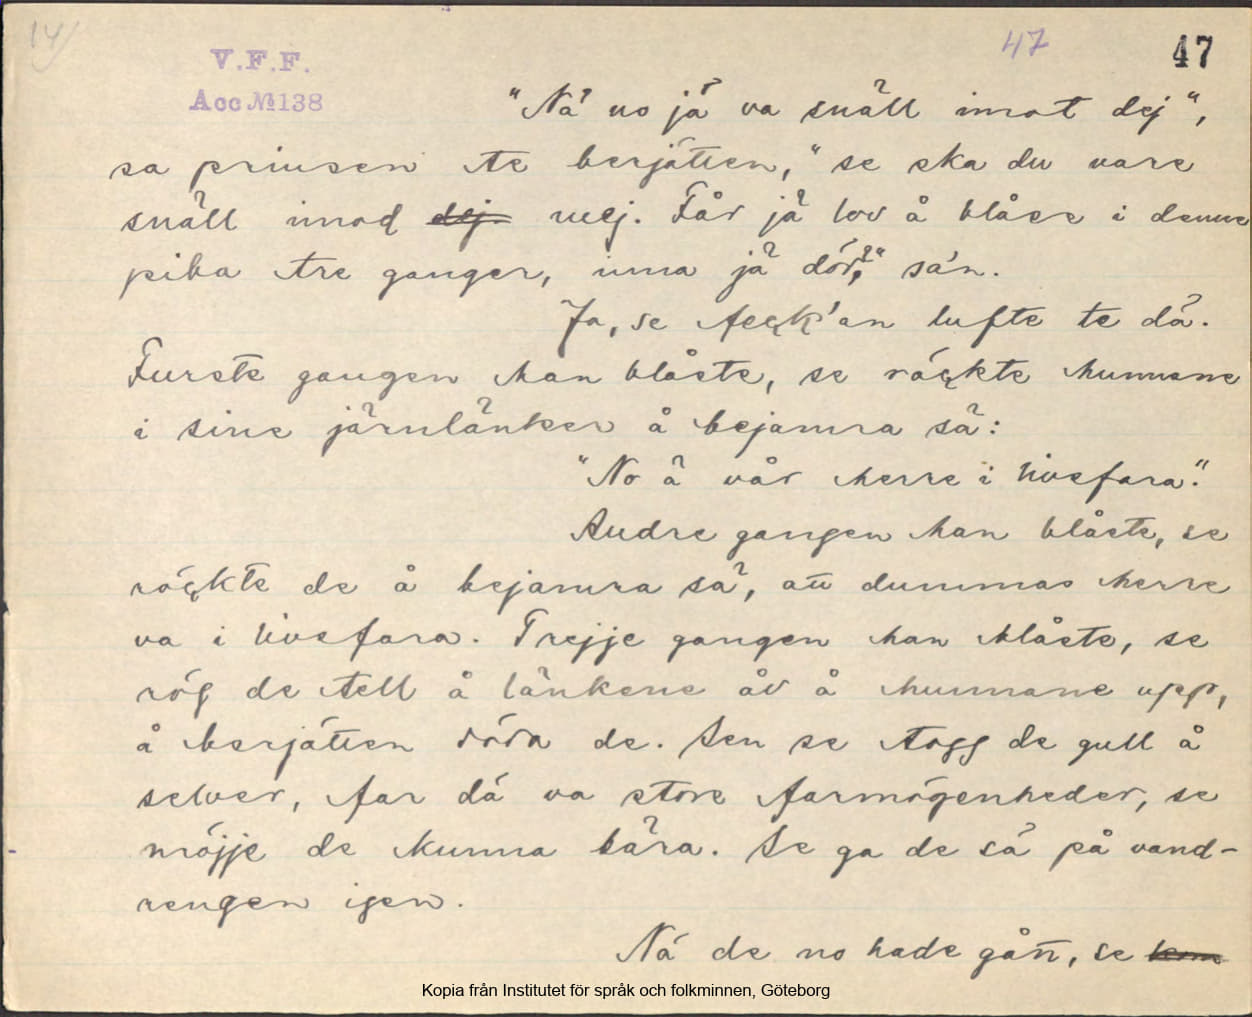 14/
V.F.F.
Acc № 138
47
47
"Nä no jä va snäll imot dej",
sa prinsen te berjätten, "se ska du vare
snäll imod dej mej. Får jä lov å blåse i denne
piba tre ganger, inna jä dör?" sa'n.
Ja, se feck'an lufte te dä.
Furste gangen han blåste, se röckte hunnane
i sine järnlänker å bejamra sä:
"No ä vår herre i livsfara."
Andre gangen han blåste, se
röckte de å bejamra sä, att dummas herre
va i livsfara. Trejje gangen han blåste, se
rög de tell å länkene åv å hunnane upp,
å berjätten röra de. Sen se togg de gull å
selver, far dä va store farmögenheder, se
möjje de kunna bära. Se ga de sä på vand-
rengen igen.
Nä de no hade gått, se kom
Kopia från Institutet för språk och folkminnen, Göteborg